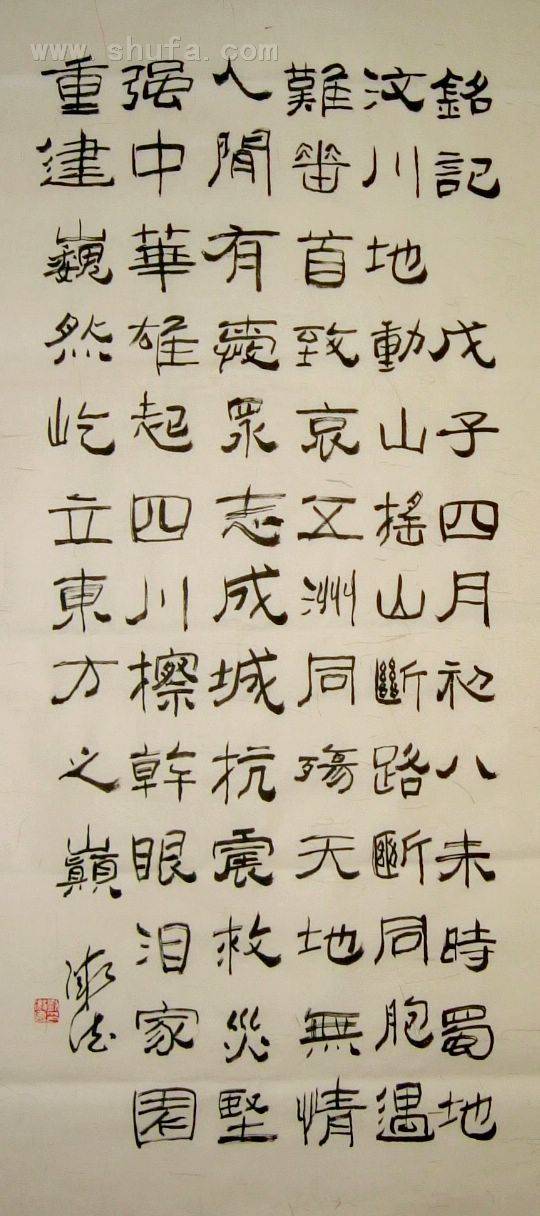 www.shufa.com
銘記 戊子四月初八未時蜀地
汶川地動山搖山斷路斷同胞遇
難首致哀五洲同殤天地無情
人間有愛眾志成城抗震救災堅
强中華雄起四川擦幹眼泪家園
重建巍然屹立東方之巔